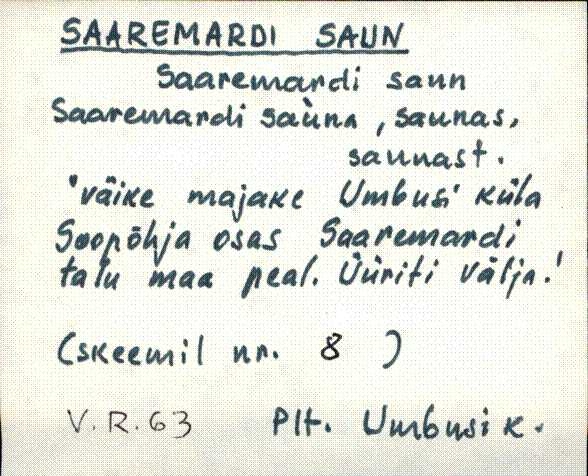 SAAREMARDI SAUN
Saaremardi saun
Saaremardi sàuna, saunas,
saunast.
'väike majake Umbusi küla
Soopõhja osas Saaremardi
talu maa peal. Üüriti välja.'
(skeemil nr. 8 )
V.R.63 Plt. Umbusi k.